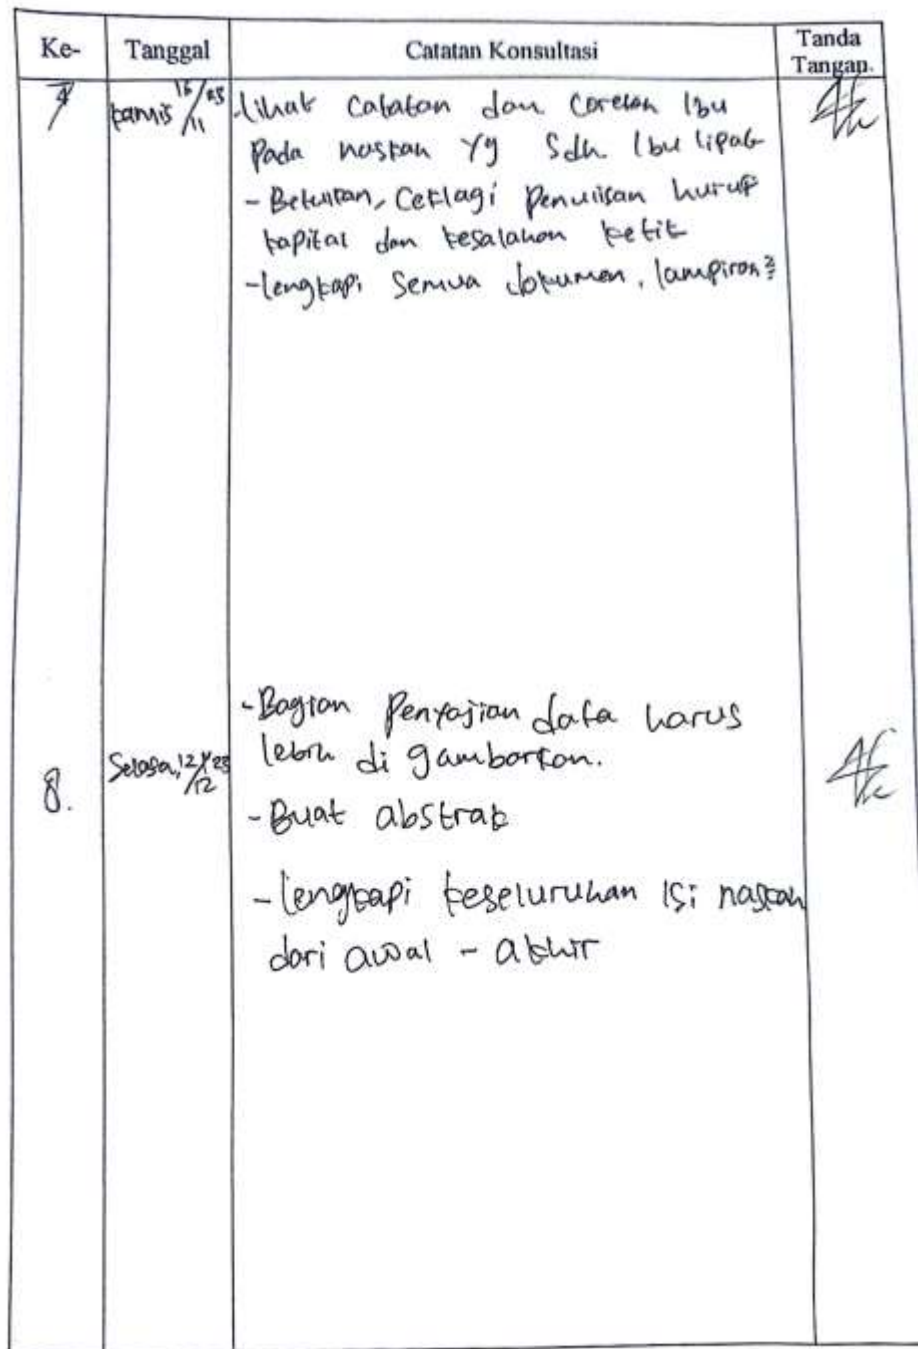 Ke- Tanggal Catatan Konsultasi Tanda Tangan.
7 kamis 16/11 23 -lihat catatan dan coretan Ibu
Pada naskah yg Sdh Ibu lipat
- Betulkan, Cek lagi Penulisan huruf
kapital dan kesalahan ketik
-lengkapi Semua dokumen, lampiran²
-Bagian Penyajian data harus
8. Selasa, 12/12 23 lebih di gambarkan.
-Buat abstrak
-lengkapi keseluruhan isi naskah
dari awal - akhir